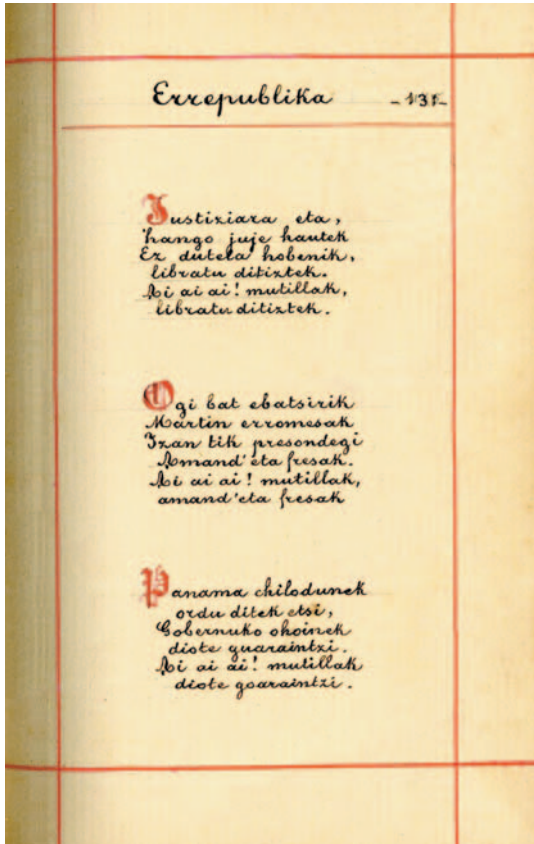 Errepublika -131-
Justiziara eta,
hango juje hautek
Ez dutela hobenik,
libratu ditiztek.
Ai ai ai! mutillak,
libratu ditiztek.
Ogi bat ebatsirik
Martin erromesak
Izan tik presondegi
Amand'eta fresak.
Ai ai ai! mutillak,
amand'eta fresak
Panama chilodunek
ordu ditek etsi,
Gobernuko ohoinek
diote guaraintzi.
Ai ai ai! mutillak
diote goaraintzi.